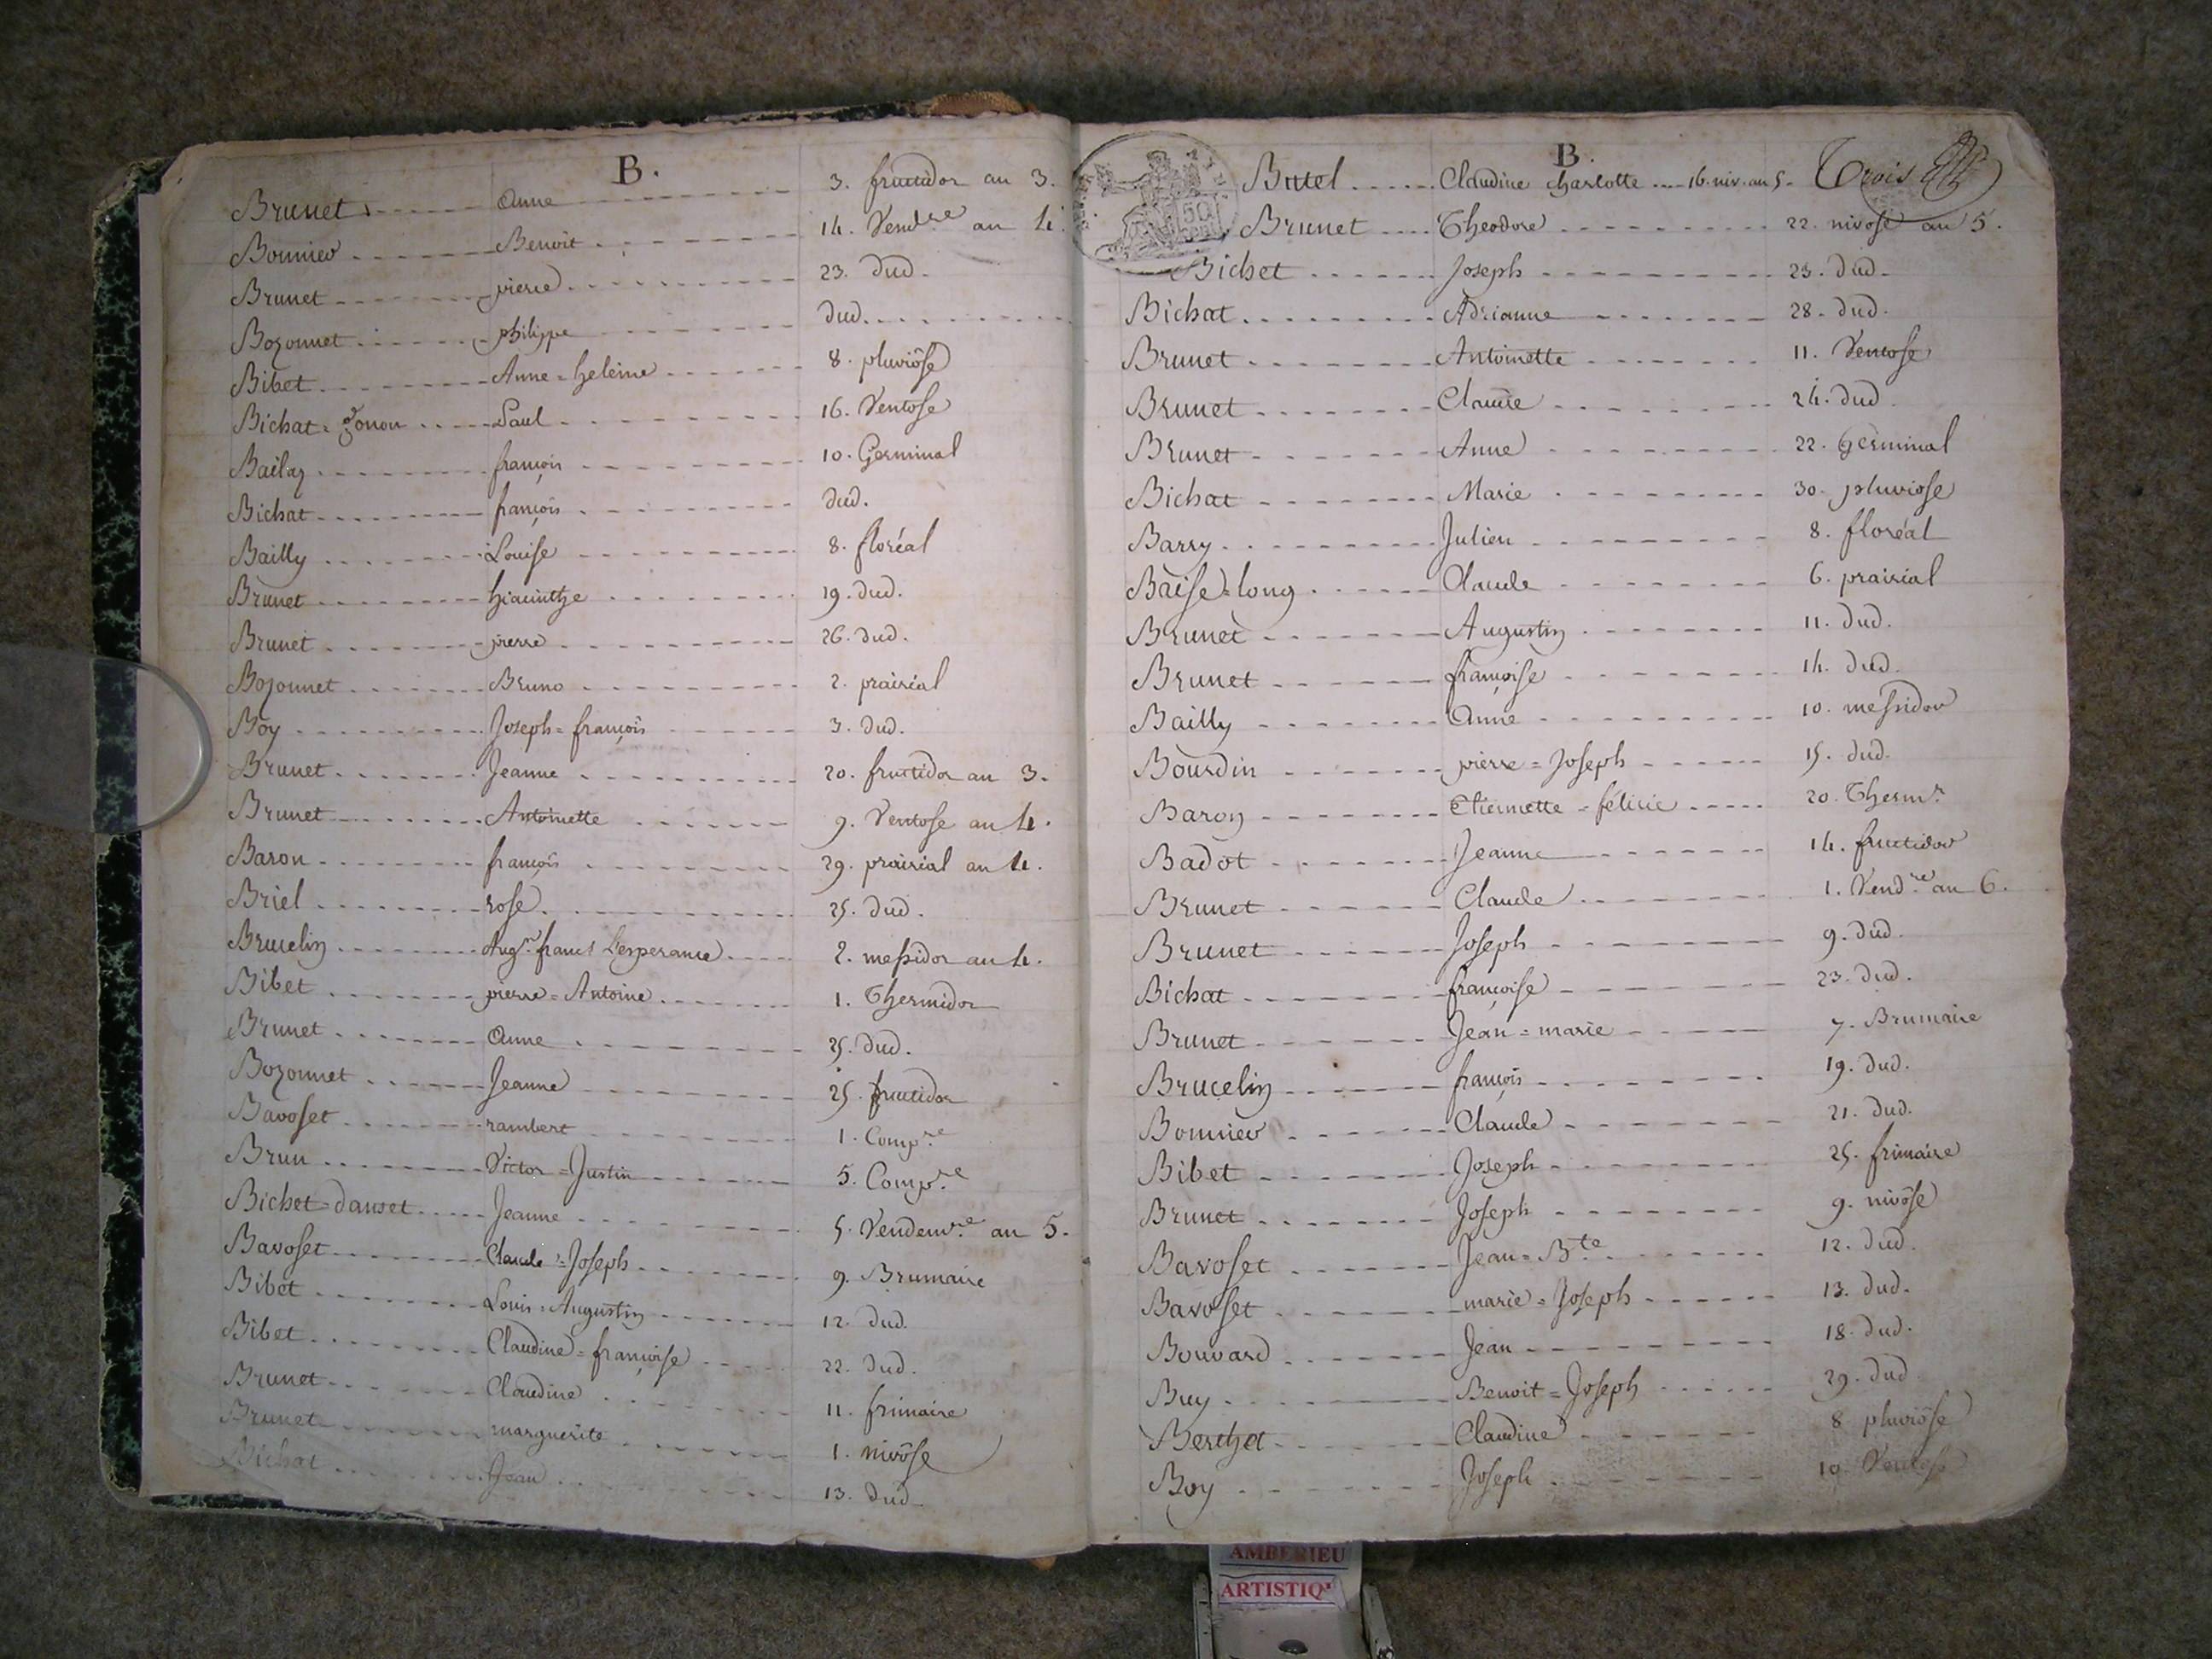 B.
Brunet Anne 3. fructidor an 3.
Bonnier Benoit 14. Vend.re an 4.
Brunet pierre 23. dud.
Bozonnet philippe dud.
Bibet Anne=heleine 8. pluviôse
Bichat=gonon Paul 16. Ventose
Bailly françois 10. Germinal
Bichat françois dud.
Bailly Louise 8. floréal
Brunet hiacinthe 19. dud.
Brunet pierre 26. dud.
Bozonnet Bruno 2. prairial
Boy Joseph=françois 3. dud.
Brunet Jeanne 20. fructidor an 3.
Brunet Antoinette 9. Ventose an 4.
Baron françois 29. prairial an 4.
Briel rose 25. dud.
Brucelin Aug.in franc.s L'esperance 2. messidor an 4.
Bibet pierre=Antoine 1. Thermidor
Brunet Anne 25. dud.
Bozonnet Jeanne 25. fructidor
Bavoset rambert 1. Comp.re
Brun Victor=Justin 5. Comp.re
Bichet=danset Jeanne 5. Vendem.re an 5.
Bavoset Claude=Joseph 9. Brumaire
Bibet Louis=Augustin 12. dud.
Bibet Claudine=françoise 22. dud.
Brunet Claudine 11. frimaire
Brunet marguerite 1. nivôse
Bichat Jean 13. dud.
B. Trois
50
Butel Claudine charlotte 16. niv. an 5.
Brunet Theodore 22. nivose an 5.
Bichet Joseph 23. dud.
Bichat Adrianne 28. dud.
Brunet Antoinette 11. Ventose
Brunet Claude 24. dud.
Brunet Anne 22. germinal
Bichat Marie 30. pluviose
Barry Julien 8. floréal
Baise=long Claude 6. prairial
Brunet Augustin 11. dud.
Brunet françoise 14. dud.
Bailly Anne 10. messidor
Bourdin pierre=Joseph 15. dud.
Baron Etiennette=félicie 20. Therm.r
Badot Jeanne 14. fructidor
Brunet Claude 1. Vend.re an 6.
Brunet Joseph 9. dud.
Bichat françoise 23. dud.
Brunet Jean=marie 7. Brumaire
Brucelin françois 19. dud.
Bonnier Claude 21. dud.
Bibet Joseph 25. frimaire
Brunet Joseph 9. nivôse
Bavoset Jean=B.te 12. dud.
Bavoset marie=Joseph 13. dud.
Bouvard Jean 18. dud.
Buy Benoit=Joseph 29. dud
Berthet Claudine 8 pluviôse
Boy Joseph 10 Ventose
AMBERIEU
ARTISTIQ